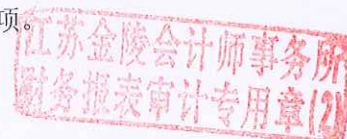 项。
江苏金陵会计师事务所
财务报表审计专用章(2)